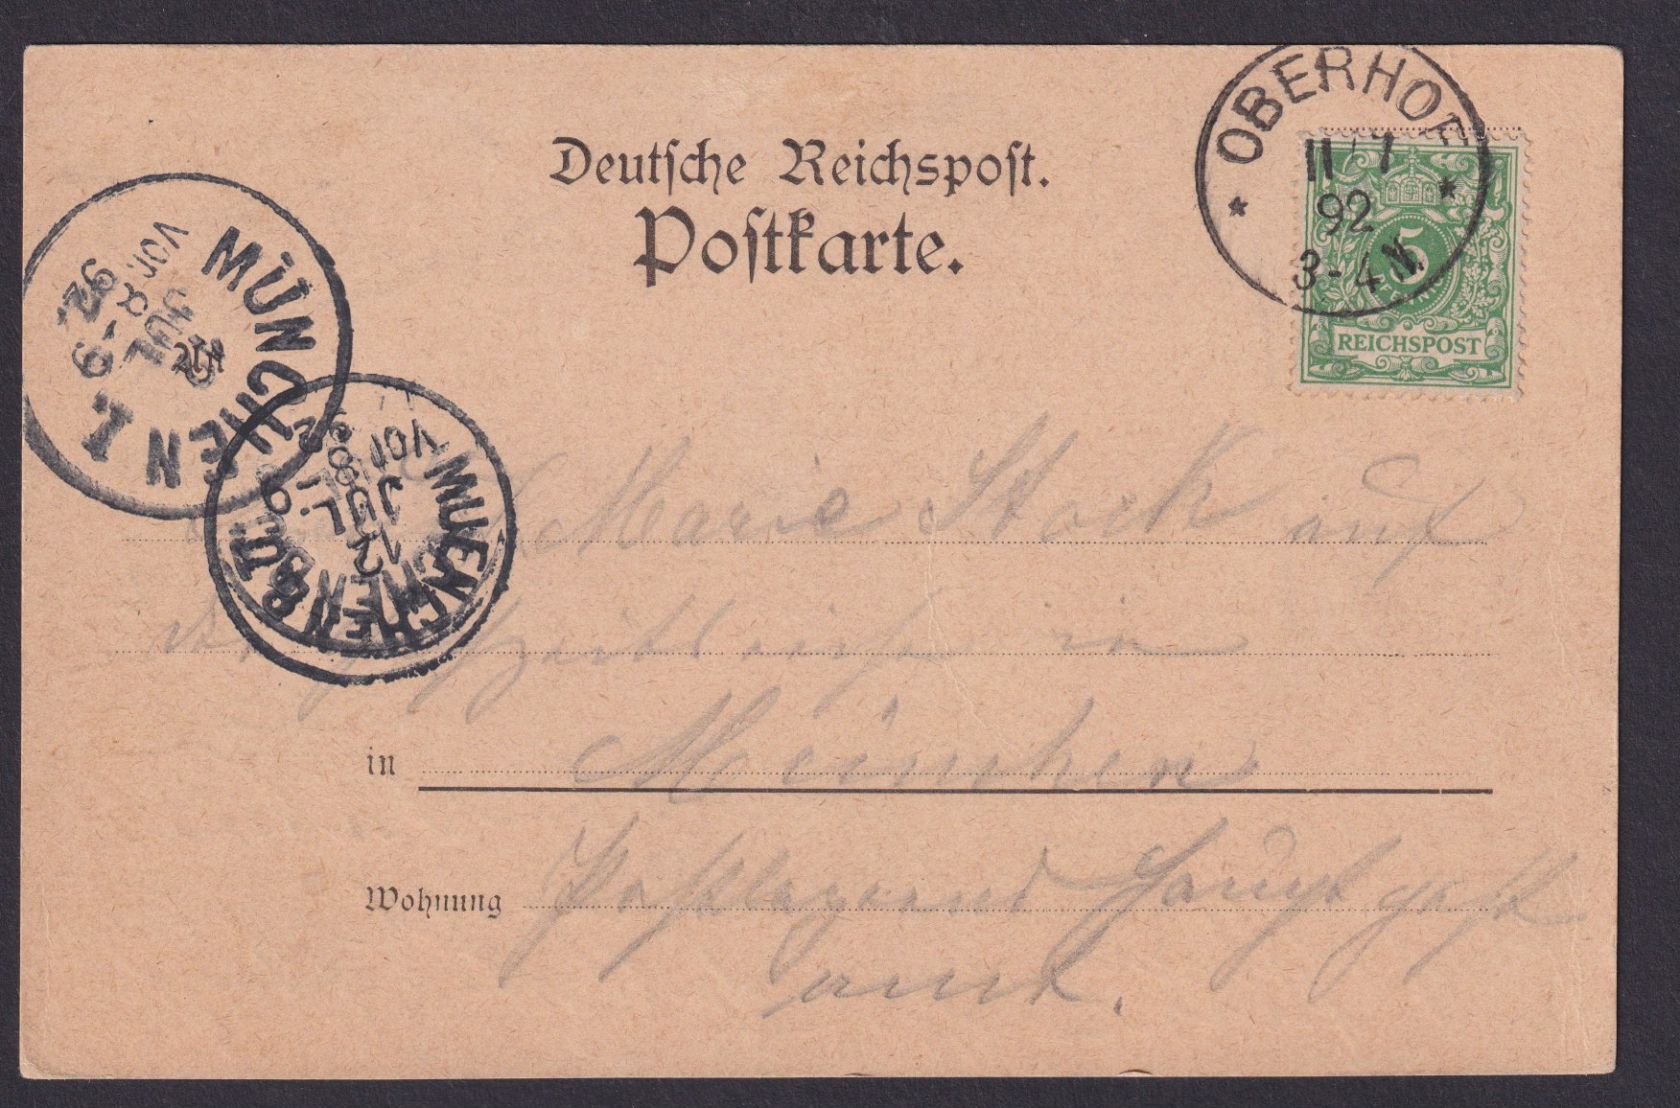 Deutsche Reichspost.
Postkarte.
OBERHOF
11/7
92
3-4 N.
5
REICHSPOST
MÜNCHEN I.
VOR. 8-9
JUL
92.
MUENCHEN
VOR. 8-9
12
JUL
Marie Stock auf
in
in München
Wohnung Postlagernd Hauptpost
amt.